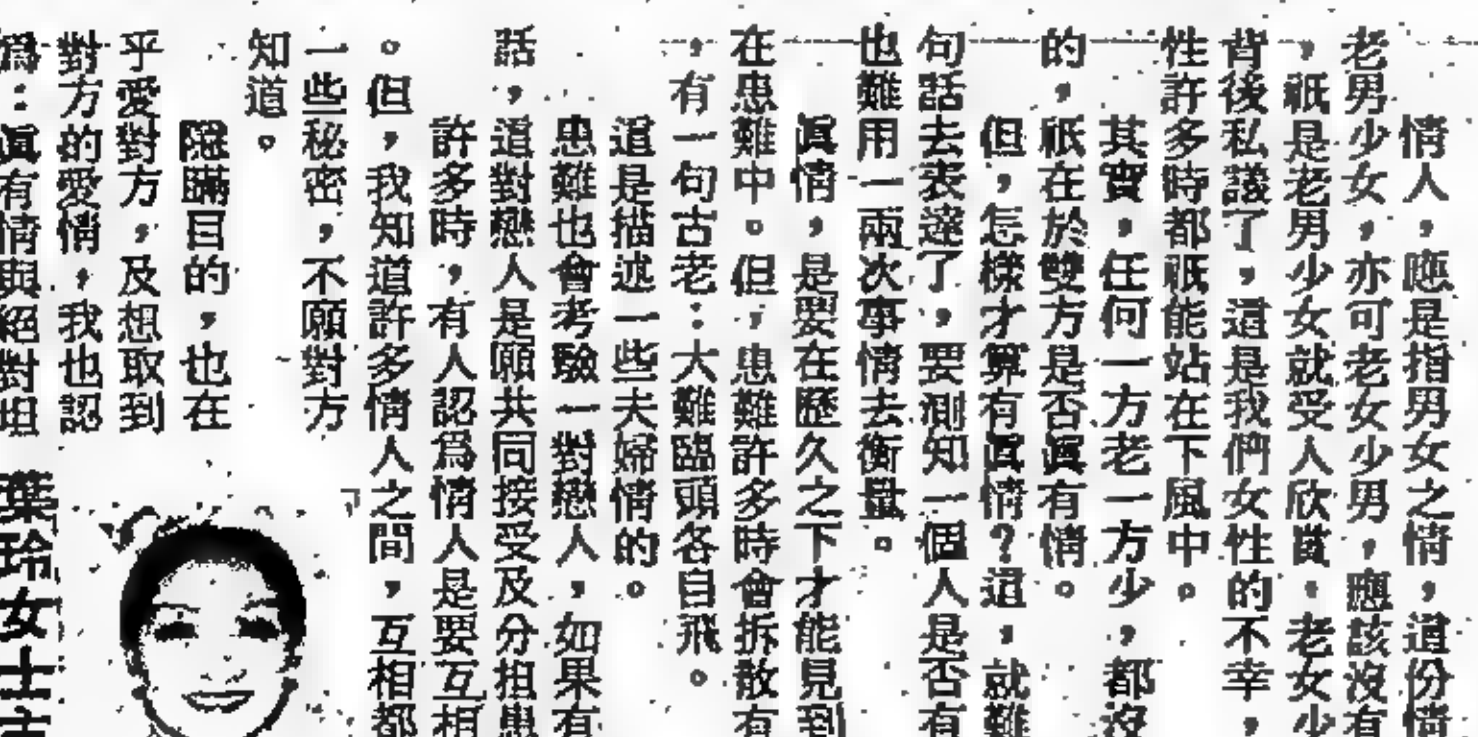 情人，應是指男女之情，這份情
老男少女，亦可老女少男，應該沒有
，祇是老男少女就受人欣賞。老女少
背後私議了，這是我們女性的不幸，
性許多時都祇能站在下風中。
其實，任何一方老一方少，都沒
的，祇在於雙方是否眞有情。
但，怎樣才算有眞情？這，就難
句話去表達了，要測知一個人是否有
也難用一兩次事情去衡量。
眞情，是要在歷久之下才能見到
在患難中。但，患難許多時會拆散有
，有一句古老：大難臨頭各自飛。
這是描述一些夫婦情的。
患難也會考驗一對戀人，如果有
話，這對戀人是願共同接受及分担患
許多時，有人認爲情人是要互相
。但，我知道許多情人之間，互相都
一些秘密，不願對方
知道。
隱瞞目的，也在
乎愛對方，及想取到
對方的愛情，我也認
爲：眞有情與絕對坦
葉玲女士